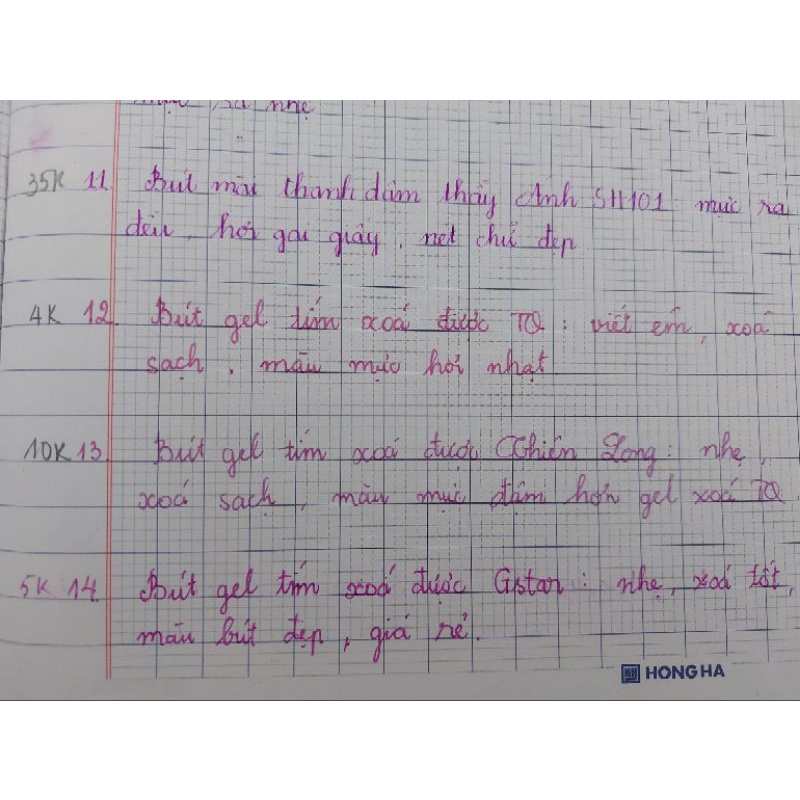 ra nhẹ
35K 11 Bút mài thanh đậm thầy Ánh SH101: mực ra
đều, hơi gai giấy, nét chữ đẹp
4K 12 Bút gel tím xoá được TQ: viết êm, xoá
sạch, màu mực hơi nhạt
10K 13 Bút gel tím xoá được Thiên Long: nhẹ,
xoá sạch, màu mực đậm hơn gel xoá TQ
5K 14 Bút gel tím xoá được Gstar: nhẹ, xoá tốt,
màu bút đẹp, giá rẻ.
HONG HA